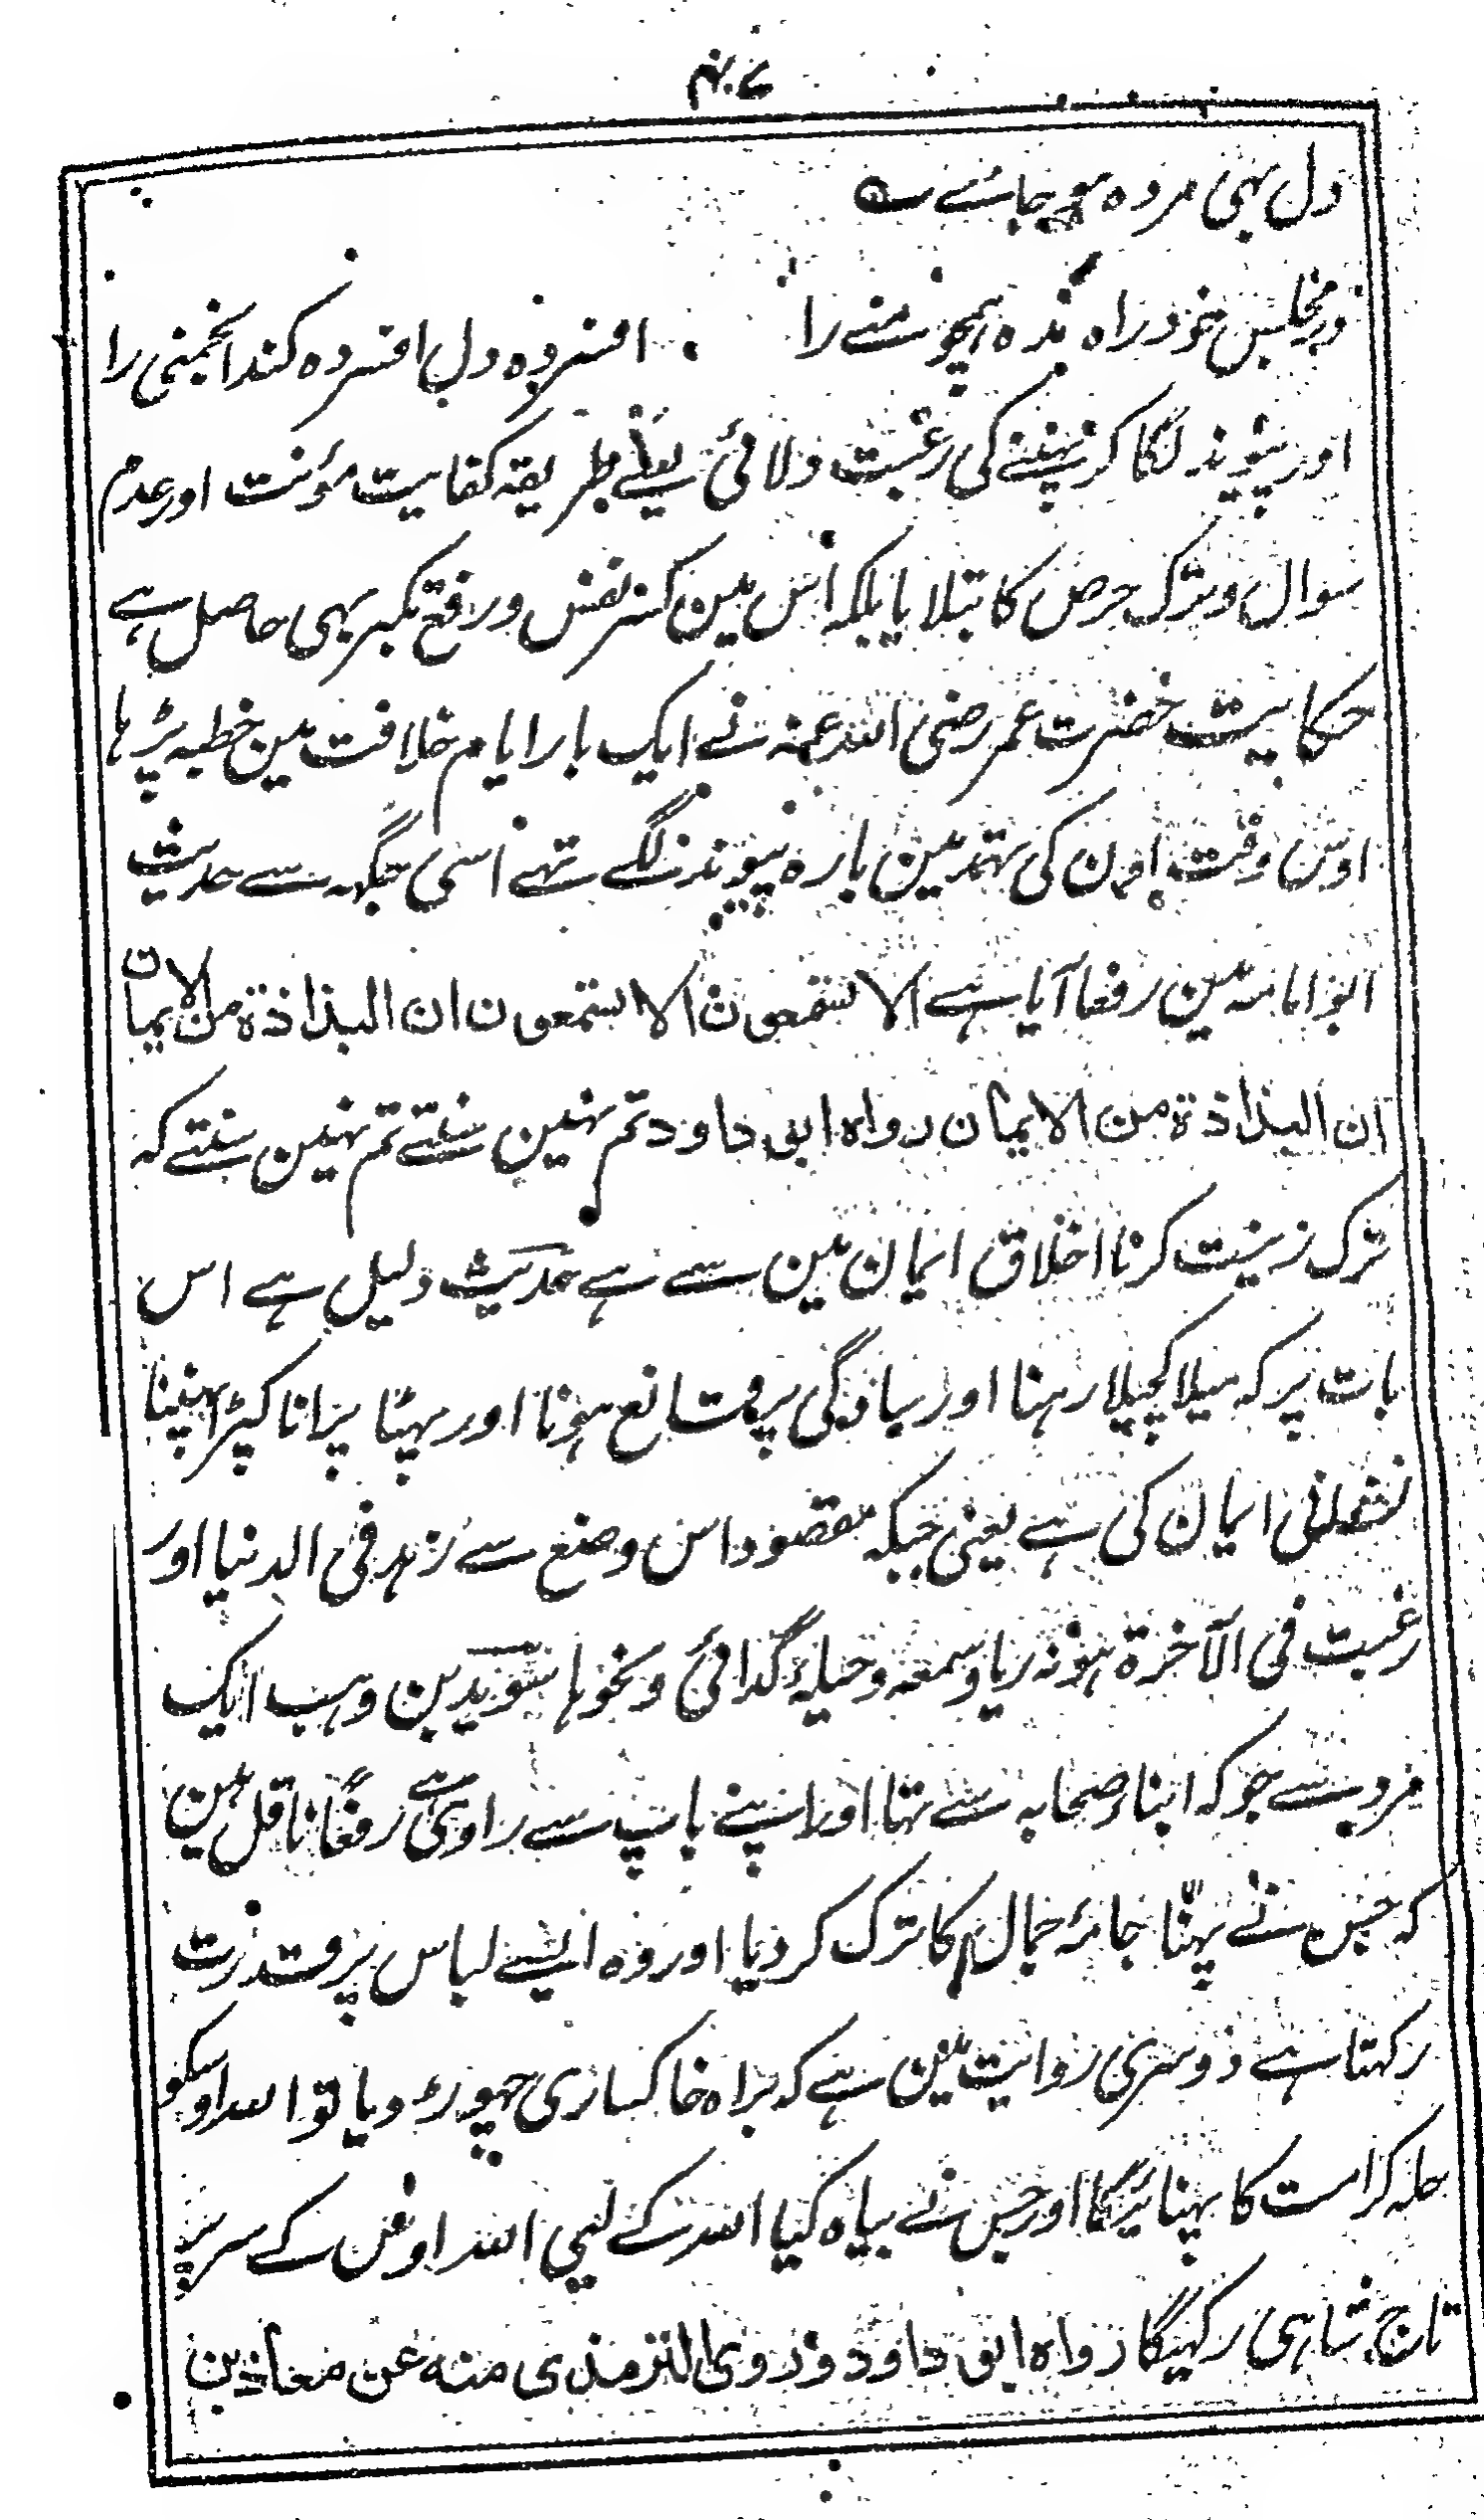 ۴۰۷
دل بہی مردہ ہو جائے ؎
در مجلس خود راہ مدہ ہمچو منے را افسردہ دل افسردہ کند انجمنی را
اور پیوند لگا کر پہننے کی رغبت دلائی یعنے طریقہ کفایت مؤنت اور عدم
سوال و ترک حرص کا بتلایا بلکہ اس مین کسر نفس و رفع تکبر بہی حاصل ہے
حکایت حضرت عمر رضی اللہ عنہ نے ایک بار ایام خلافت مین خطبہ پڑہا
اوس وقت اون کی تہمد مین بارہ پیوند لگے تہے اسی جگہہ سے حدیث
ابو امامہ مین رفعا آیا ہے الا تسمعون الا تسمعون ان البذاذة من الایمان
ان البذاذة من الایمان رواہ ابو داود تم نہین سنتے تم نہین سنتے کہ
ترک زینت کرنا اخلاق ایمان مین سے ہے حدیث دلیل ہے اس
بات پر کہ میلا کچیلا رہنا اور سادگی پر قانع ہونا اور پہٹا پرانا کپڑا پہننا
نشانی ایمان کی ہے یعنی جبکہ مقصود اس وضع سے زہد فی الدنیا اور
رغبت فی الآخرة ہو نہ ریا و سمعہ و حیلۂ گدائی و نحوہا سوید بن وہب ایک
مرد سے جو کہ ابناء صحابہ سے تہا اور اپنے باپ سے راوی ہے رفعًا ناقل ہین
کہ جس نے پہنّا جامۂ جمال کا ترک کر دیا اور وہ ایسے لباس پر قدرت
رکہتا ہے دوسری روایت مین ہے کہ براہ خاکساری چہوڑ دیا تو اللہ اوسکو
حلہ کرامت کا پہنائیگا اور جس نے بیاہ کیا اللہ کے لیی اللہ اوس کے سر پر
تاج شاہی رکہیگا رواہ ابو داود و روی الترمذی منہ عن معاذ بن